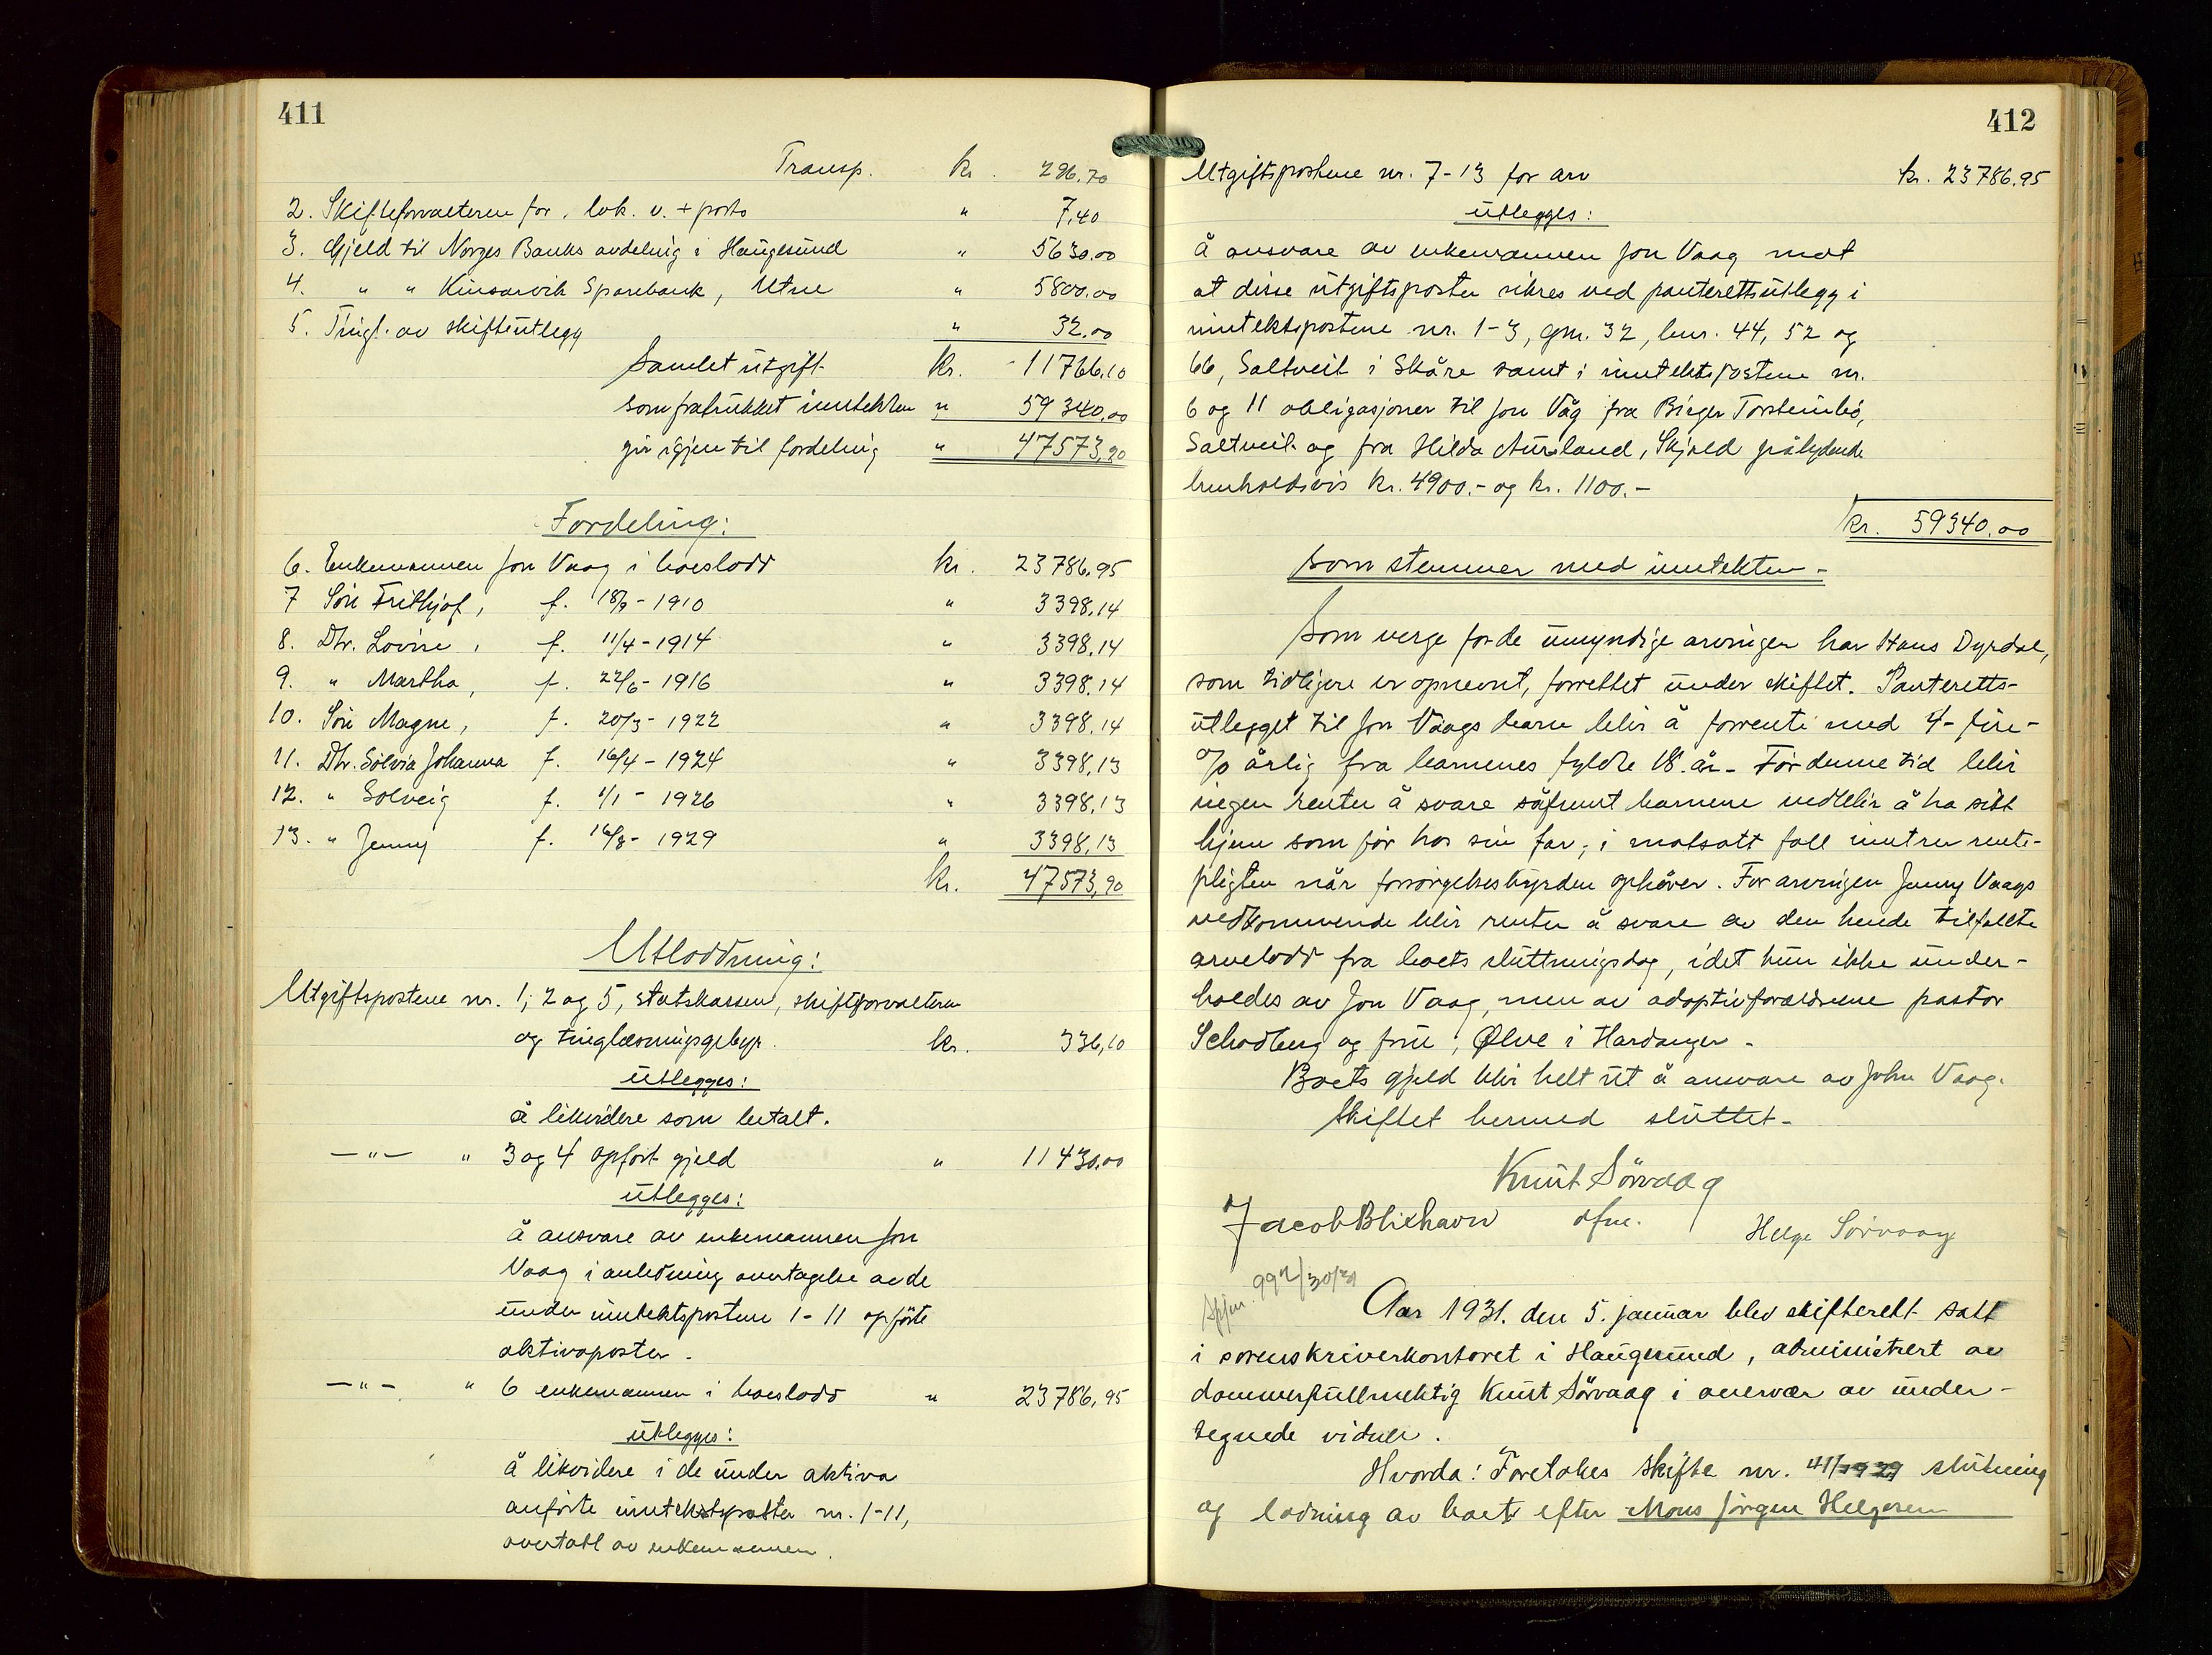 411
Transp. kr. 296.70
2. Skifteforvalteren for, lok. v. + porto " 7,40
3. Gjeld til Norges Banks avdeling i Haugesund " 5630.00
4. " " Kinsarvik Sparebank, Utne " 5800.00
5. Tingl. av skifteutlegg " 32.00
Samlet utgift kr. 11766.10
som fratrukket inntekten " 59340.00
gir igjen til fordeling " 47573,90
Fordeling:
6. Enkemannen Jon Vaag i boeslodd kr. 23786.95
7 Sön Frithjof, f. 18/9 - 1910 " 3398,14
8. Dtr. Lovise, f. 11/4 - 1914 " 3398,14
9. " Martha, f. 22/6 - 1916 " 3398,14
10. Sön Magne, f. 20/3 - 1922 " 3398,14
11. Dtr. Solvia Johanna f. 16/4 - 1924 " 3398,13
12. " Solveig f. 1/1 - 1926 " 3398,13
13. " Jenny f. 16/8 - 1929 " 3398,13
kr. 47573,90
Utloddning:
Utgiftspostene nr. 1, 2 og 5, statskassen, skifteforvalteren
og tinglæsningsgebyr. kr. 336,10
utlegges:
å likvidere som betalt.
— " — " 3 og 4 opfört gjeld " 11430.00
utlegges:
å ansvare av enkemannen Jon
Vaag i anledning overtagelse av de
under inntektspostene 1 - 11 opförte
aktivaposter.
— " — " 6 enkemannen i boeslodd " 23786,95
utlegges:
å likvidere i de under aktiva
anförte inntektsposter nr. 1-11,
overtatt av enkemannen.
412
Utgiftspostene nr. 7-13 for arv kr. 23786.95
utlegges:
å ansvare av enkemannen Jon Vaag mot
at disse utgiftsposter sikres ved panterettsutlegg i
inntektspostene nr. 1-3, gnr. 32, bnr. 44, 52 og
66, Saltveit i Skåre samt i inntektspostene nr.
6 og 11 obligasjoner til Jon Våg fra Birger Torsteinbö,
Saltveit og fra Hilda Aursland, Skjold pålydende
henholdsvis kr. 4900.- og kr. 1100.-
kr. 59340.00
som stemmer med inntekten -
Som verge for de umyndige arvinger har Hans Dyrdal,
som tidligere er opnevnt, forrettet under skiftet. Panteretts-
utlegget til Jon Vaags barn blir å forrente med 4- fire-
% årlig fra barnenes fyldte 18. år. För denne tid blir
ingen renter å svare såfremt barnene vedblir å ha sitt
hjem som för hos sin far; i motsatt fall inntrer rente-
pligten når forsörgelsesbyrden ophörer. For arvingen Jenny Vaags
vedkommende blir renter å svare av den hende tilfallte
arvelodd fra boets slutningsdag, idet hun ikke under-
holdes av Jon Vaag, men av adoptivforældrene pastor
og frue, Ølve i Hardanger -
Boets gjeld blir helt ut å ansvare av John Vaag.
Skiftet hermed sluttet -
Knut Sörvaag
dfm.
Jacob Blixhavn Helge Sörvaag
992/30/31
Aar 1931. den 5. januar blev skifterett satt
i sorenskriverkontoret i Haugesund, administrert av
dommerfullmektig Knut Sörvaag i overvær av under-
tegnede vidner.
Hvorda: Foretokes skifte nr. 41/1929 slutning
og lodning av boet efter Mons Jörgen Helgesen